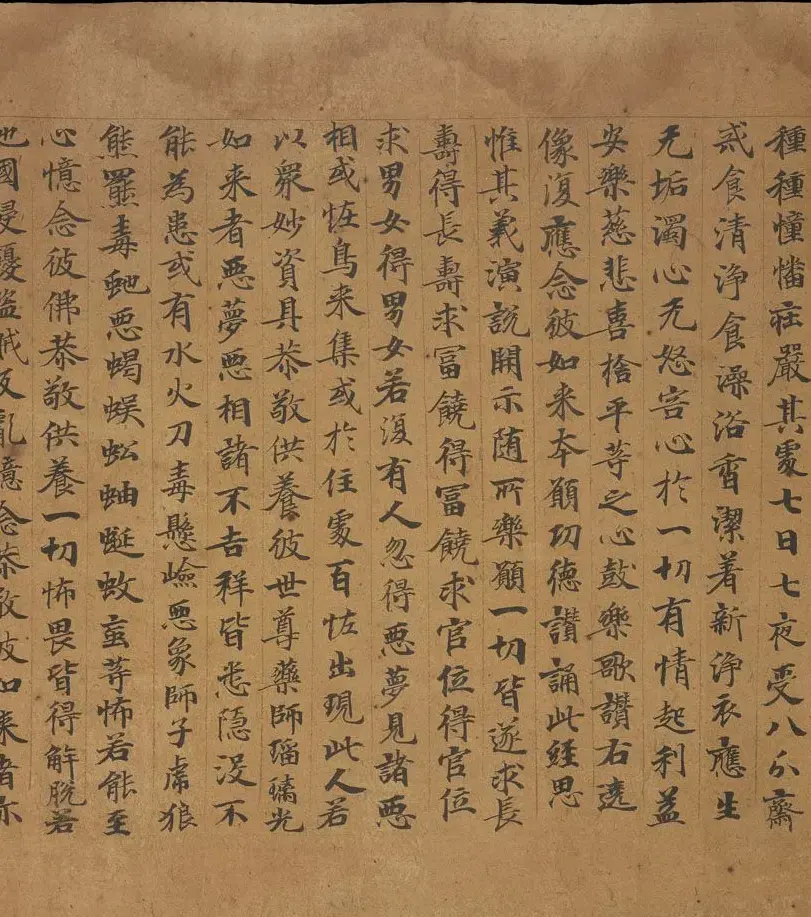 種種幢幡莊嚴其處七日七夜受八分齋
戒食清淨食澡浴香潔著新淨衣應生
无垢濁心无怒害心於一切有情起利益
安樂慈悲喜捨平等之心鼓樂歌讃右遶
像復應念彼如来夲願功德讃誦此經思
惟其義演説開示随所樂願一切皆遂求長
壽得長壽求冨饒得冨饒求官位得官位
求男女得男女若復有人忽得惡夢見諸惡
相或恠鳥来集或於住處百恠出現此人若
以衆妙資具恭敬供養彼世尊藥師瑠璃光
如来者惡夢惡相諸不吉祥皆悉隱没不
能為患或有水火刀毒懸嶮惡象師子虎狼
熊羆毒虵惡蝎蜈蚣蚰蜒蚊䖟等怖若能至
心憶念彼佛恭敬供養一切怖畏皆得解脱若
他國侵擾盜賊反亂憶念恭敬彼如来者亦